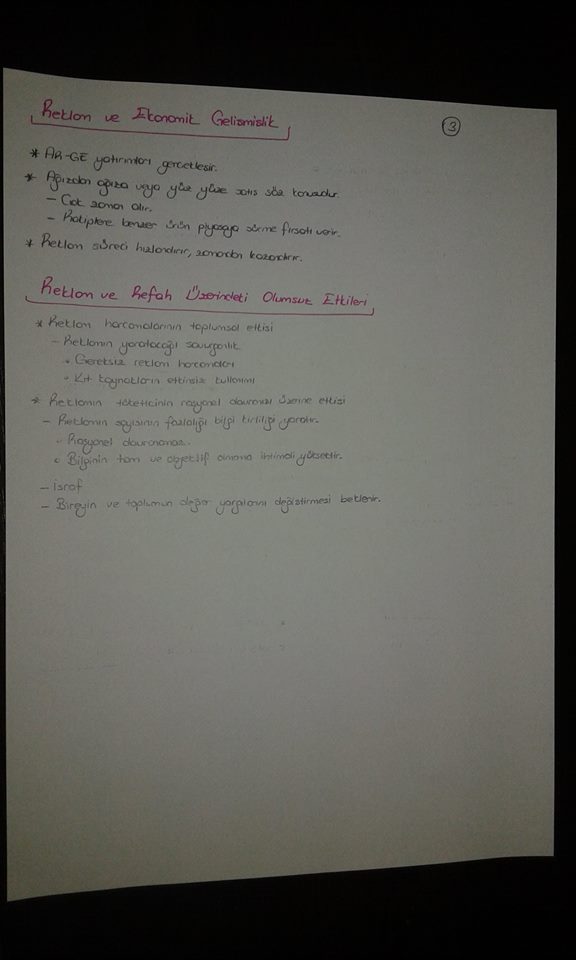 Reklam ve Ekonomik Gelişmişlik
3
* AR-GE yatırımları gerçekleşir.
* Ağızdan ağıza veya yüz yüze satış söz konusudur.
- Çok zaman alır.
- Rakiplere benzer ürün piyasaya sürme fırsatı verir.
* Reklam süreci hızlandırır, zamandan kazandırır.
Reklam ve Refah Üzerindeki Olumsuz Etkileri
* Reklam harcamalarının toplumsal etkisi
- Reklamın yaratacağı savurganlık
• Gereksiz reklam harcamaları
• Kıt kaynakların etkinsiz kullanımı
* Reklamın tüketicinin rasyonel davranışı üzerine etkisi
- Reklamın sayısının fazlalığı bilgi kirliliği yaratır.
• Rasyonel davranamaz.
• Bilginin tam ve objektif olmama ihtimali yüksektir.
- israf
- Bireyin ve toplumun değer yargılarını değiştirmesi beklenir.